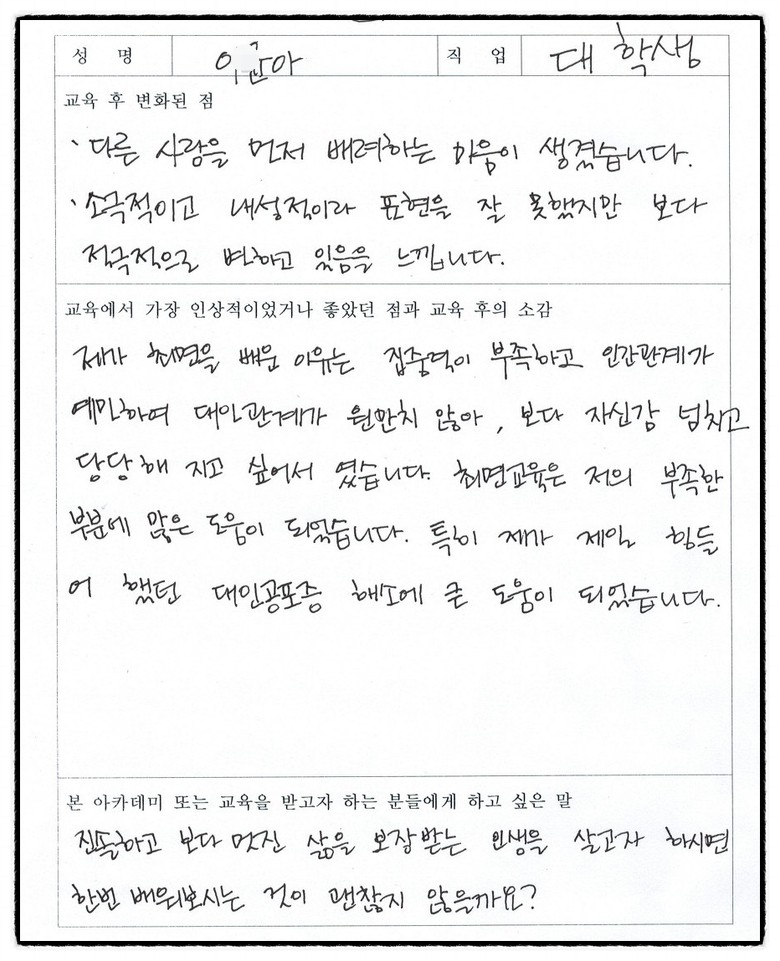 성 명 직 업 대학생
교육 후 변화된 점
· 다른 사람을 먼저 배려하는 마음이 생겼습니다.
· 소극적이고 내성적이라 표현을 잘 못했지만 보다
적극적으로 변하고 있음을 느낍니다.
교육에서 가장 인상적이었거나 좋았던 점과 교육 후의 소감
제가 최면을 배운 이유는 집중력이 부족하고 인간관계가
예민하여 대인관계가 원만치 않아, 보다 자신감 넘치고
당당해 지고 싶어서 였습니다. 최면교육은 저의 부족한
부분에 많은 도움이 되었습니다. 특히 제가 제일 힘들
어 했던 대인공포증 해소에 큰 도움이 되었습니다.
본 아카데미 또는 교육을 받고자 하는 분들에게 하고 싶은 말
진솔하고 보다 멋진 삶을 보장받는 인생을 살고자 하시면
한번 배워보시는 것이 괜찮지 않을까요?